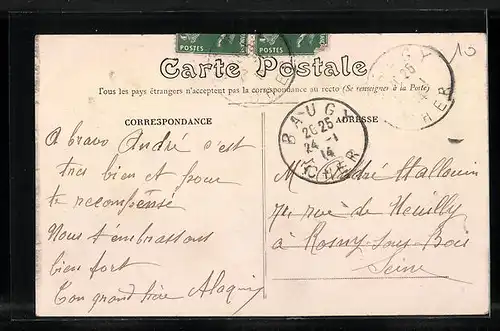 POSTES POSTES
Carte Postale
Tous les pays étrangers n'acceptent pas la correspondance au recto (Se renseigner à la Poste)
CORRESPONDANCE
A bravo André c'est
tres bien et pour
te recompensé
Nous t'embrassons
bien fort
Ton grand frère
ADRESSE
M André Mallouin
rue de Neuilly
à Rosny sous Bois
Seine
BAUGY
20 25
24 - 1
14
CHER
10